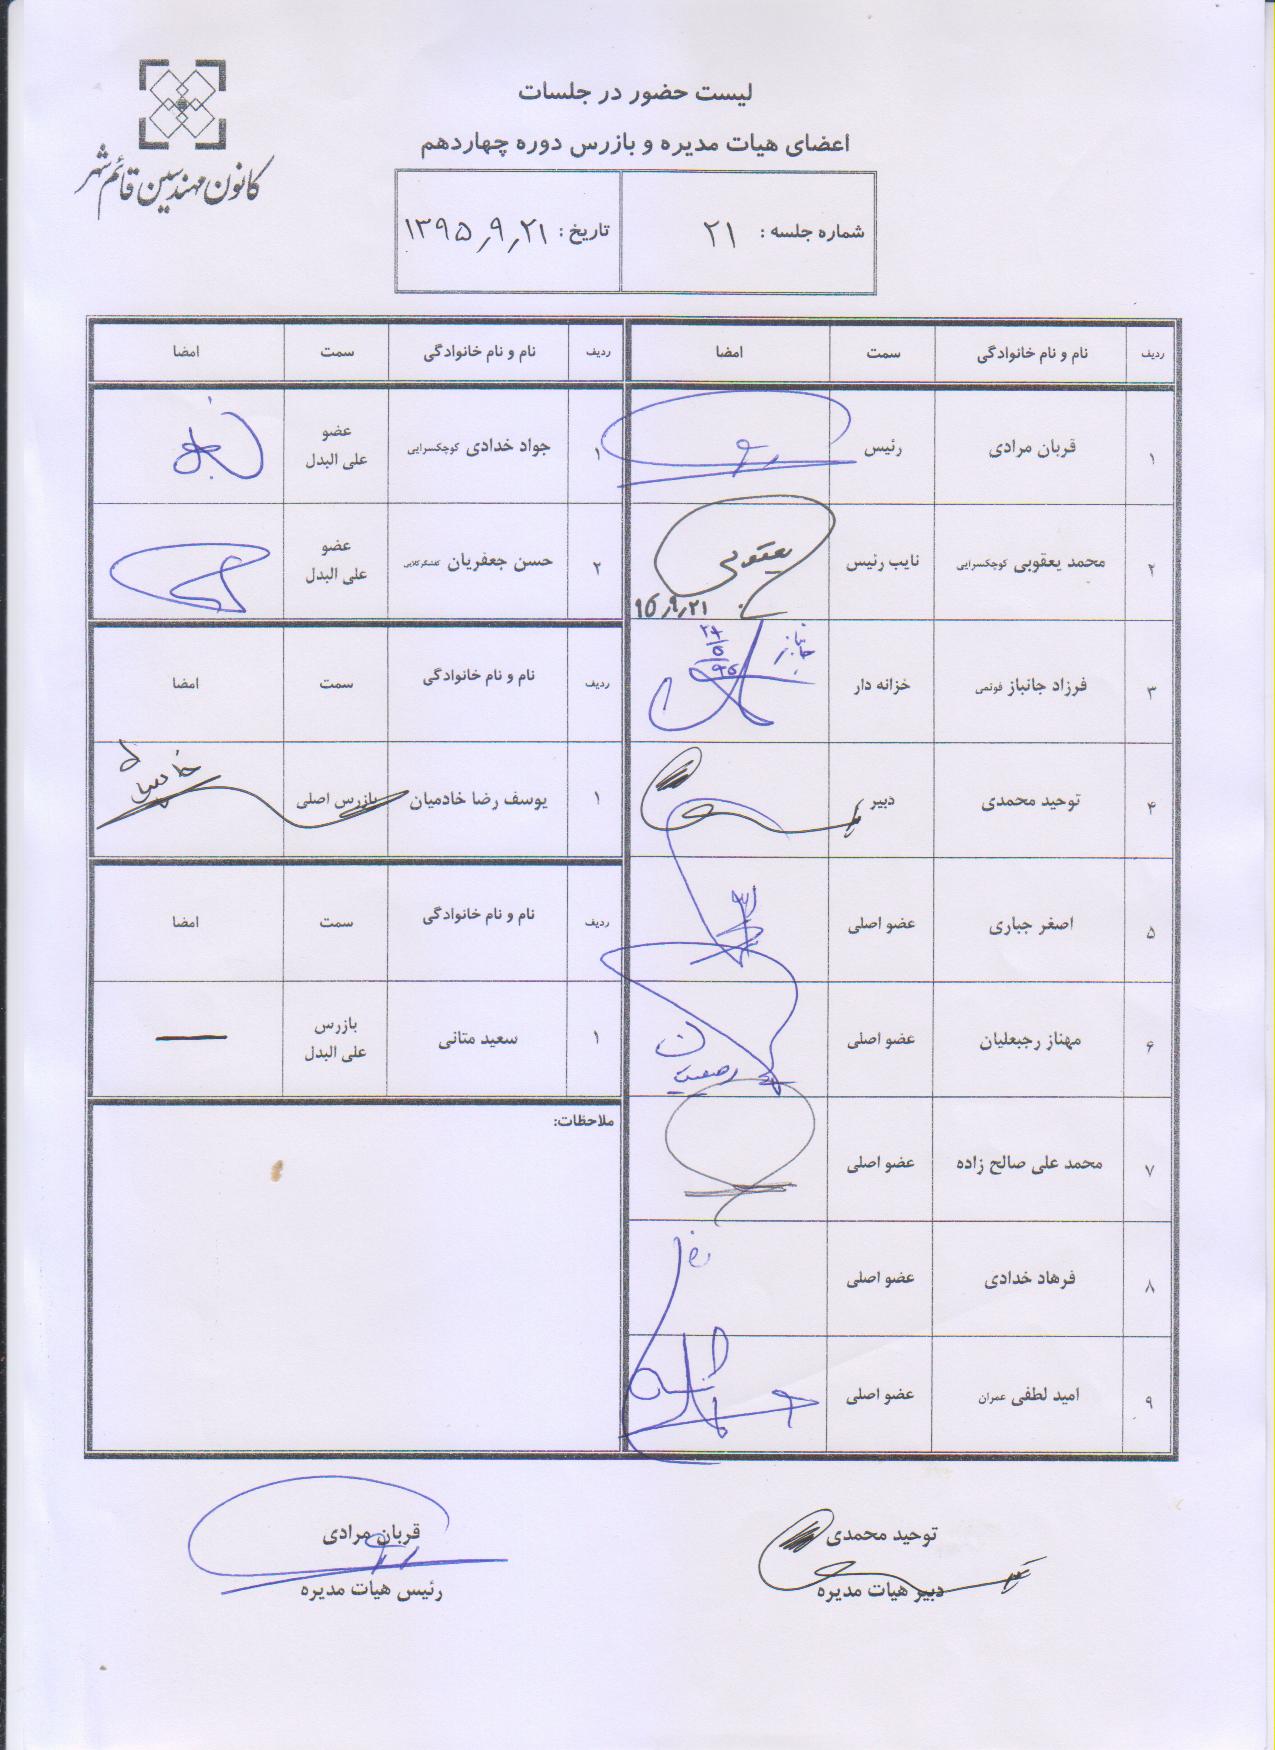 کانون مهندسین قائم شهر
لیست حضور در جلسات
اعضای هیات مدیره و بازرس دوره چهاردهم
شماره جلسه : ۲۱
تاریخ : ۱۳۹۵٫۹٫۲۱
ردیف نام و نام خانوادگی سمت امضا
۱ قربان مرادی رئیس
۲ محمد یعقوبی کوچکسرایی نایب رئیس یعقوبی
۹۵٫۹٫۲۱
۳ فرزاد جانباز فوتمی خزانه دار جانباز
۴ توحید محمدی دبیر
۵ اصغر جباری عضو اصلی
۶ مهناز رجبعلیان عضو اصلی
۷ محمد علی صالح زاده عضو اصلی
۸ فرهاد خدادی عضو اصلی
۹ امید لطفی عمران عضو اصلی
ردیف نام و نام خانوادگی سمت امضا
۱ جواد خدادی کوچکسرایی عضو
علی البدل
۲ حسن جعفریان کفشگرکلایی عضو
علی البدل
ردیف نام و نام خانوادگی سمت امضا
۱ یوسف رضا خادمیان بازرس اصلی
ردیف نام و نام خانوادگی سمت امضا
۱ سعید متانی بازرس
علی البدل
ملاحظات:
توحید محمدی
دبیر هیات مدیره
قربان مرادی
رئیس هیات مدیره